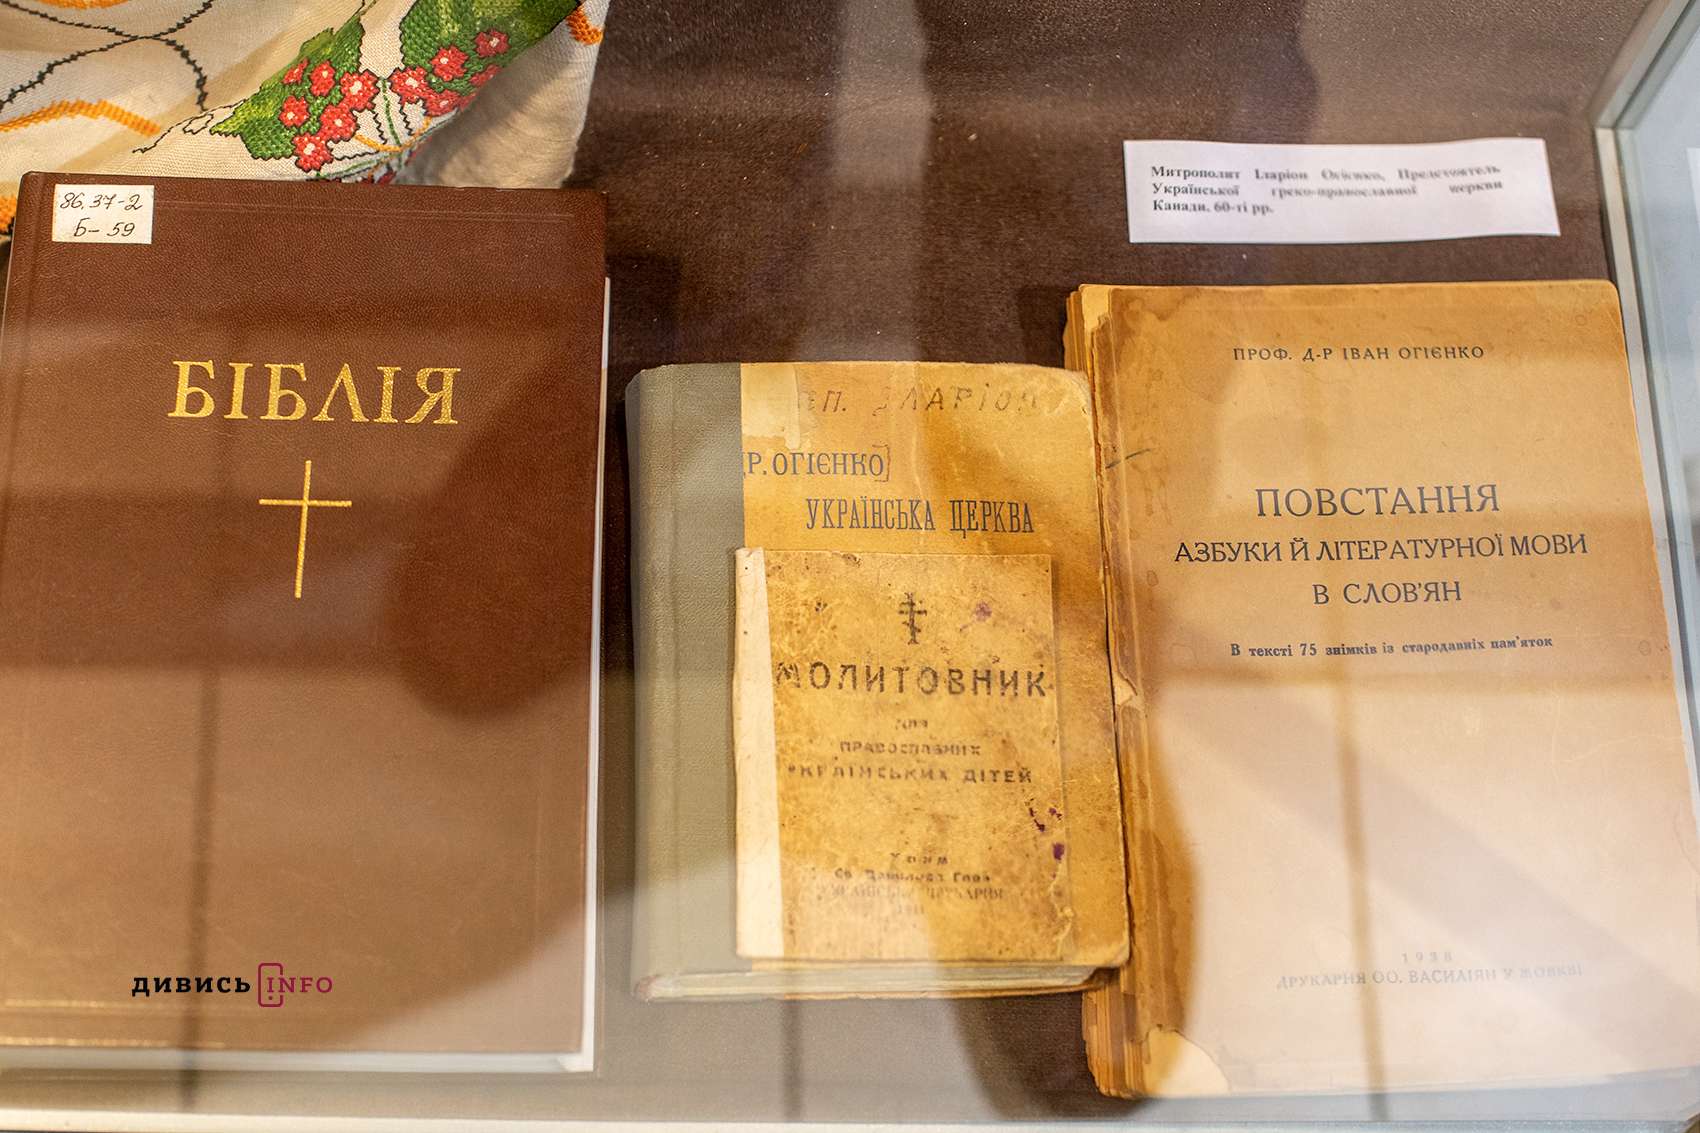 86.37-2
Б-59
БІБЛІЯ
Митрополит Іларіон Огієнко, Предстоятель
Української греко-православної церкви
Канади. 60-ті рр.
ЄП. ІЛАРІОН
ДР. ОГІЄНКО]
УКРАЇНСЬКА ЦЕРКВА
МОЛИТОВНИК
для
ПРАВОСЛАВНИХ
УКРАЇНСЬКИХ ДІТЕЙ
Холм
ДРУКАРНЯ
1941
ПРОФ. Д-Р ІВАН ОГІЄНКО
ПОВСТАННЯ
АЗБУКИ Й ЛІТЕРАТУРНОЇ МОВИ
В СЛОВ'ЯН
В тексті 75 знімків із стародавніх пам'яток
1938
ДРУКАРНЯ ОО. ВАСИЛІЯН У ЖОВКВІ
ДИВИСЬ INFO